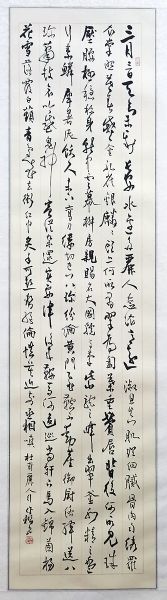 三月三日天氣新長安水邊多麗人態濃意遠淑且真肌理細膩骨肉勻繡羅
衣裳照暮春蹙金孔雀銀麒麟頭上何所有翠微㔩葉垂鬢唇背後何所見珠
壓腰衱穩稱身就中雲幕椒房親賜名大國虢與秦紫駝之峰出翠釜水精之盤
行素鱗犀箸厭飫久未下鸞刀縷切空紛綸黃門飛鞚不動塵御廚絡繹送八
珍簫鼓哀吟感鬼神賓從雜遝實要津後來鞍馬何逡巡當軒下馬入錦茵楊
花雪落覆白蘋青鳥飛去銜紅巾炙手可熱勢絕倫慎莫近前丞相嗔杜甫麗人行